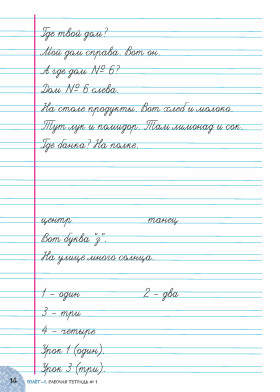 Где твой дом?
Мой дом справа. Вот он.
А где дом № 6?
Дом № 6 слева.
На столе продукты. Вот хлеб и молоко.
Тут лук и помидор. Там лимонад и сок.
Где банка? На полке.
центр танец
Вот буква "з".
На улице много солнца.
1 – один 2 – два
3 – три
4 – четыре
Урок 1 (один).
Урок 3 (три).
14 ПОЛЁТ-1. РАБОЧАЯ ТЕТРАДЬ № 1